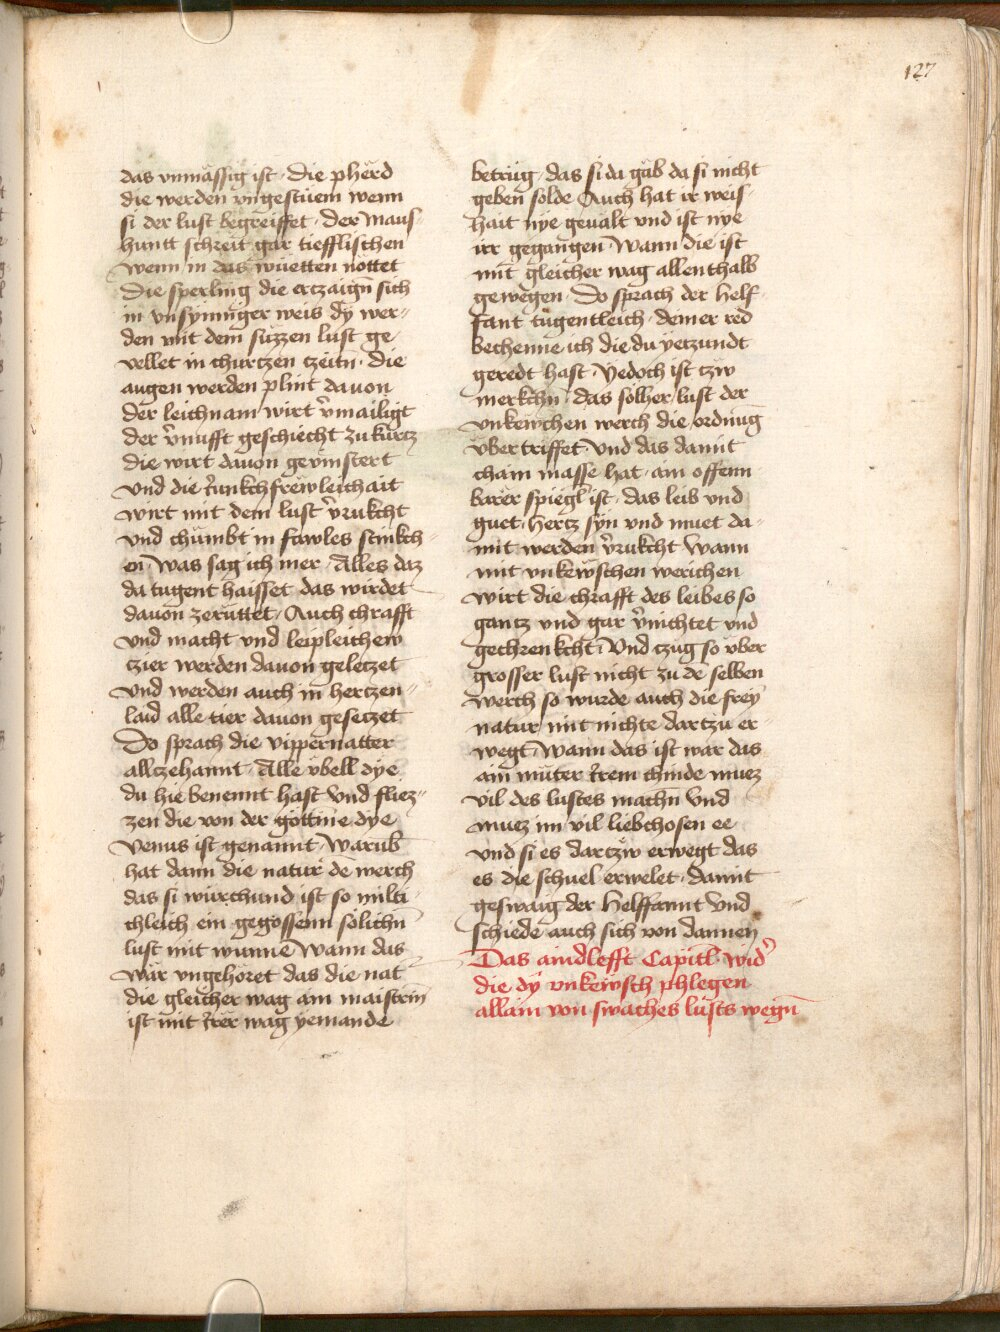 127
das vnmässig ist · Die pherd
die werden vngestüem wenn
si der lust begreiffet · Der maus
huntt schreit gar tiefflischen
wenn in das wüetten nöttet
Die sperling die ertzaign̄ sich
in vnsynniger weis dÿ wer
den mit dem süzzen lust ge
vellet in churtzen tzeitn̄ · Die
augen werden plint dauon
der leichnam wirt v̄mailigt
der v̄nufft geschiecht zu kurtz
die wirt dauon gevinstert
vnd die Junkchfrewleichait
wirt mit dem lust v̄rukcht
vnd chümbt in fawles stinkch
en · was sag ich mer · Alles daz
da tugent haisset das wirdet
dauon zerüttet · Auch chrafft
vnd macht vnd leipleichew
tzier werden dauon geletzet
vnd werden auch in hertzen
laid alle tier dauon gesetzet
Do sprach die vippernatter
alltzehannt · Alle vbell dye
du hie benennt hast vnd fliez
zen die von der göttine dye
venus ist genannt · Warub̄
hat dann die natur de werch
das si würchund ist so milti
chleich ein gegossenn solichn̄
lust mit wunne Wann das
wär vngehöret das die nat
die gleicher wag ain maistrin
ist mit Jrer wag yemande
betrüg · das si da gäb da si nicht
geben solde Auch hat ir weis
hait nye geualt vnd ist nye
irr gegangen · Wann die ist
mit gleicher wag allenthalb
gewegen · Do sprach der helf
fant tugentleich · deiner red
bechenne ich die du yetzundt
geredt hast Yedoch ist tzw
merkchn̄ · das sölher lust der
vnkewschen werch die ordnūg
vbertriffet · vnd das damit
chain masse hat · ain offenn
barer spiegl ist · das leib vnd
guet · hertz syn vnd muet da
mit werden v̄rukcht Wann
mit vnkewschen werichen
wirt die chrafft des leibes so
gantz vnd gar v̄nichtet vnd
gechrenkcht · Vnd tzug so vber
grosser lust nicht zu de selben
werch so wurde auch die frey
natur mit nichte dartzu er
wegt · Wann das ist war das
ain müter Jrem chinde muez
vil des lustes machn̄ Vnd
muez im vil liebchosen ee
vnd si es dartzw erwegt das
es die schuel erwelet · damit
geswaig der helffannt vnd
schiede auch sich von dannen
Das aindlefft Capitl · wid̄
die dÿ vnkewsch phlegen
allain von swaches lusts wegn̄